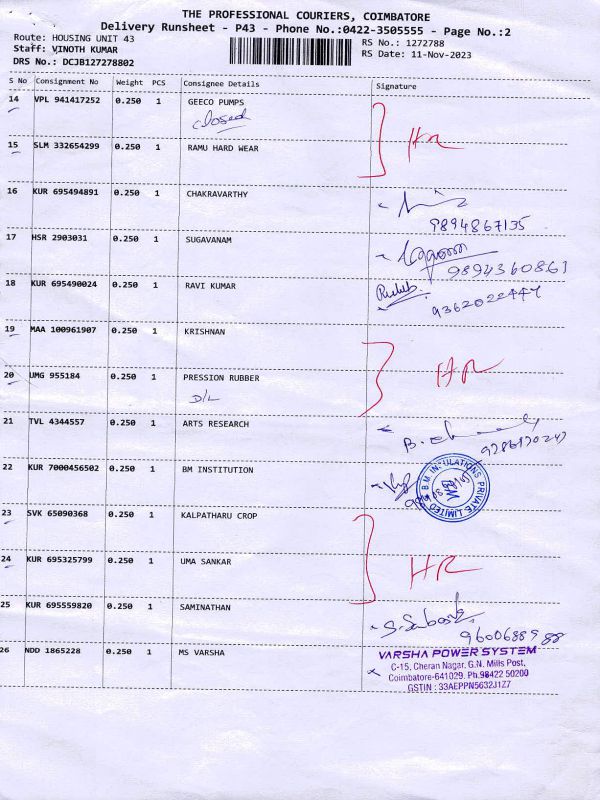 THE PROFESSIONAL COURIERS, COIMBATORE
Delivery Runsheet - P43 - Phone No.:0422-3505555 - Page No.:2
Route: HOUSING UNIT 43
RS No.: 1272788
Staff: VINOTH KUMAR
RS Date: 11-Nov-2023
DRS No.: DCJB127278802
S No Consignment No Weight PCS Consignee Details Signature
14 VPL 941417252 0.250 1 GEECO PUMPS
closed
HR
15 SLM 332654299 0.250 1 RAMU HARD WEAR
16 KUR 695494891 0.250 1 CHAKRAVARTHY
9894867135
17 HSR 2903031 0.250 1 SUGAVANAM
9894360861
18 KUR 695490024 0.250 1 RAVI KUMAR
9362022447
19 MAA 100961907 0.250 1 KRISHNAN
HR
20 UMG 955184 0.250 1 PRESSION RUBBER
D/L
21 TVL 4344557 0.250 1 ARTS RESEARCH
22 KUR 7000456502 0.250 1 BM INSTITUTION
B.M. INSULATIONS PRIVATE LIMITED
23 SVK 65090368 0.250 1 KALPATHARU CROP
24 KUR 695325799 0.250 1 UMA SANKAR
HR
25 KUR 695559820 0.250 1 SAMINATHAN
9600688988
26 NDD 1865228 0.250 1 MS VARSHA
VARSHA POWER SYSTEM
C-15, Cheran Nagar, G.N. Mills Post,
Coimbatore-641029. Ph.98422 50200
GSTIN : 33AEPPN5632J1Z7